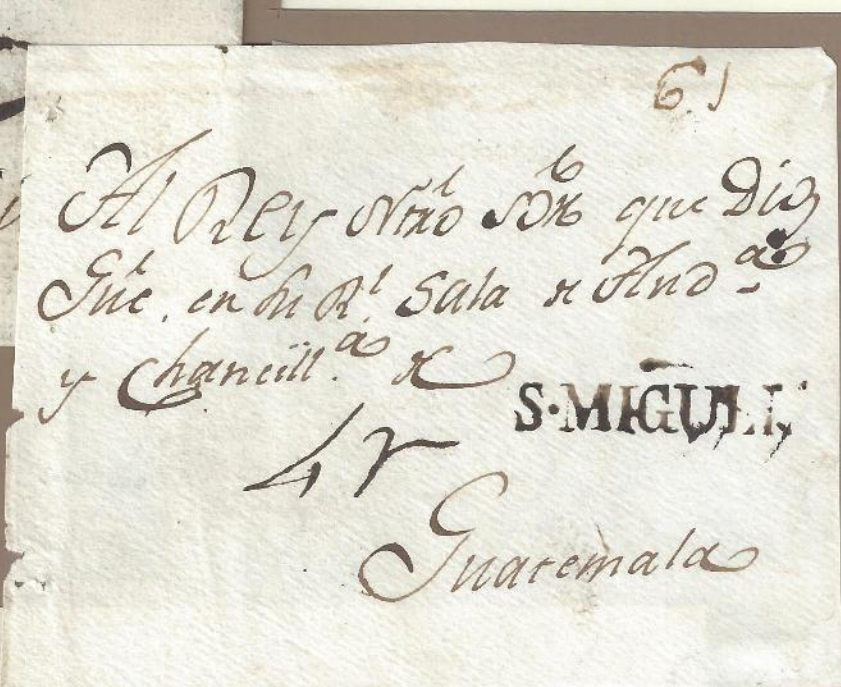 61
Al Rey Ntro Sor que Dios
Gue. en su Rl. Sala de Auda
y Chancilla. de
S. MIGUEL
4 r
Guatemala